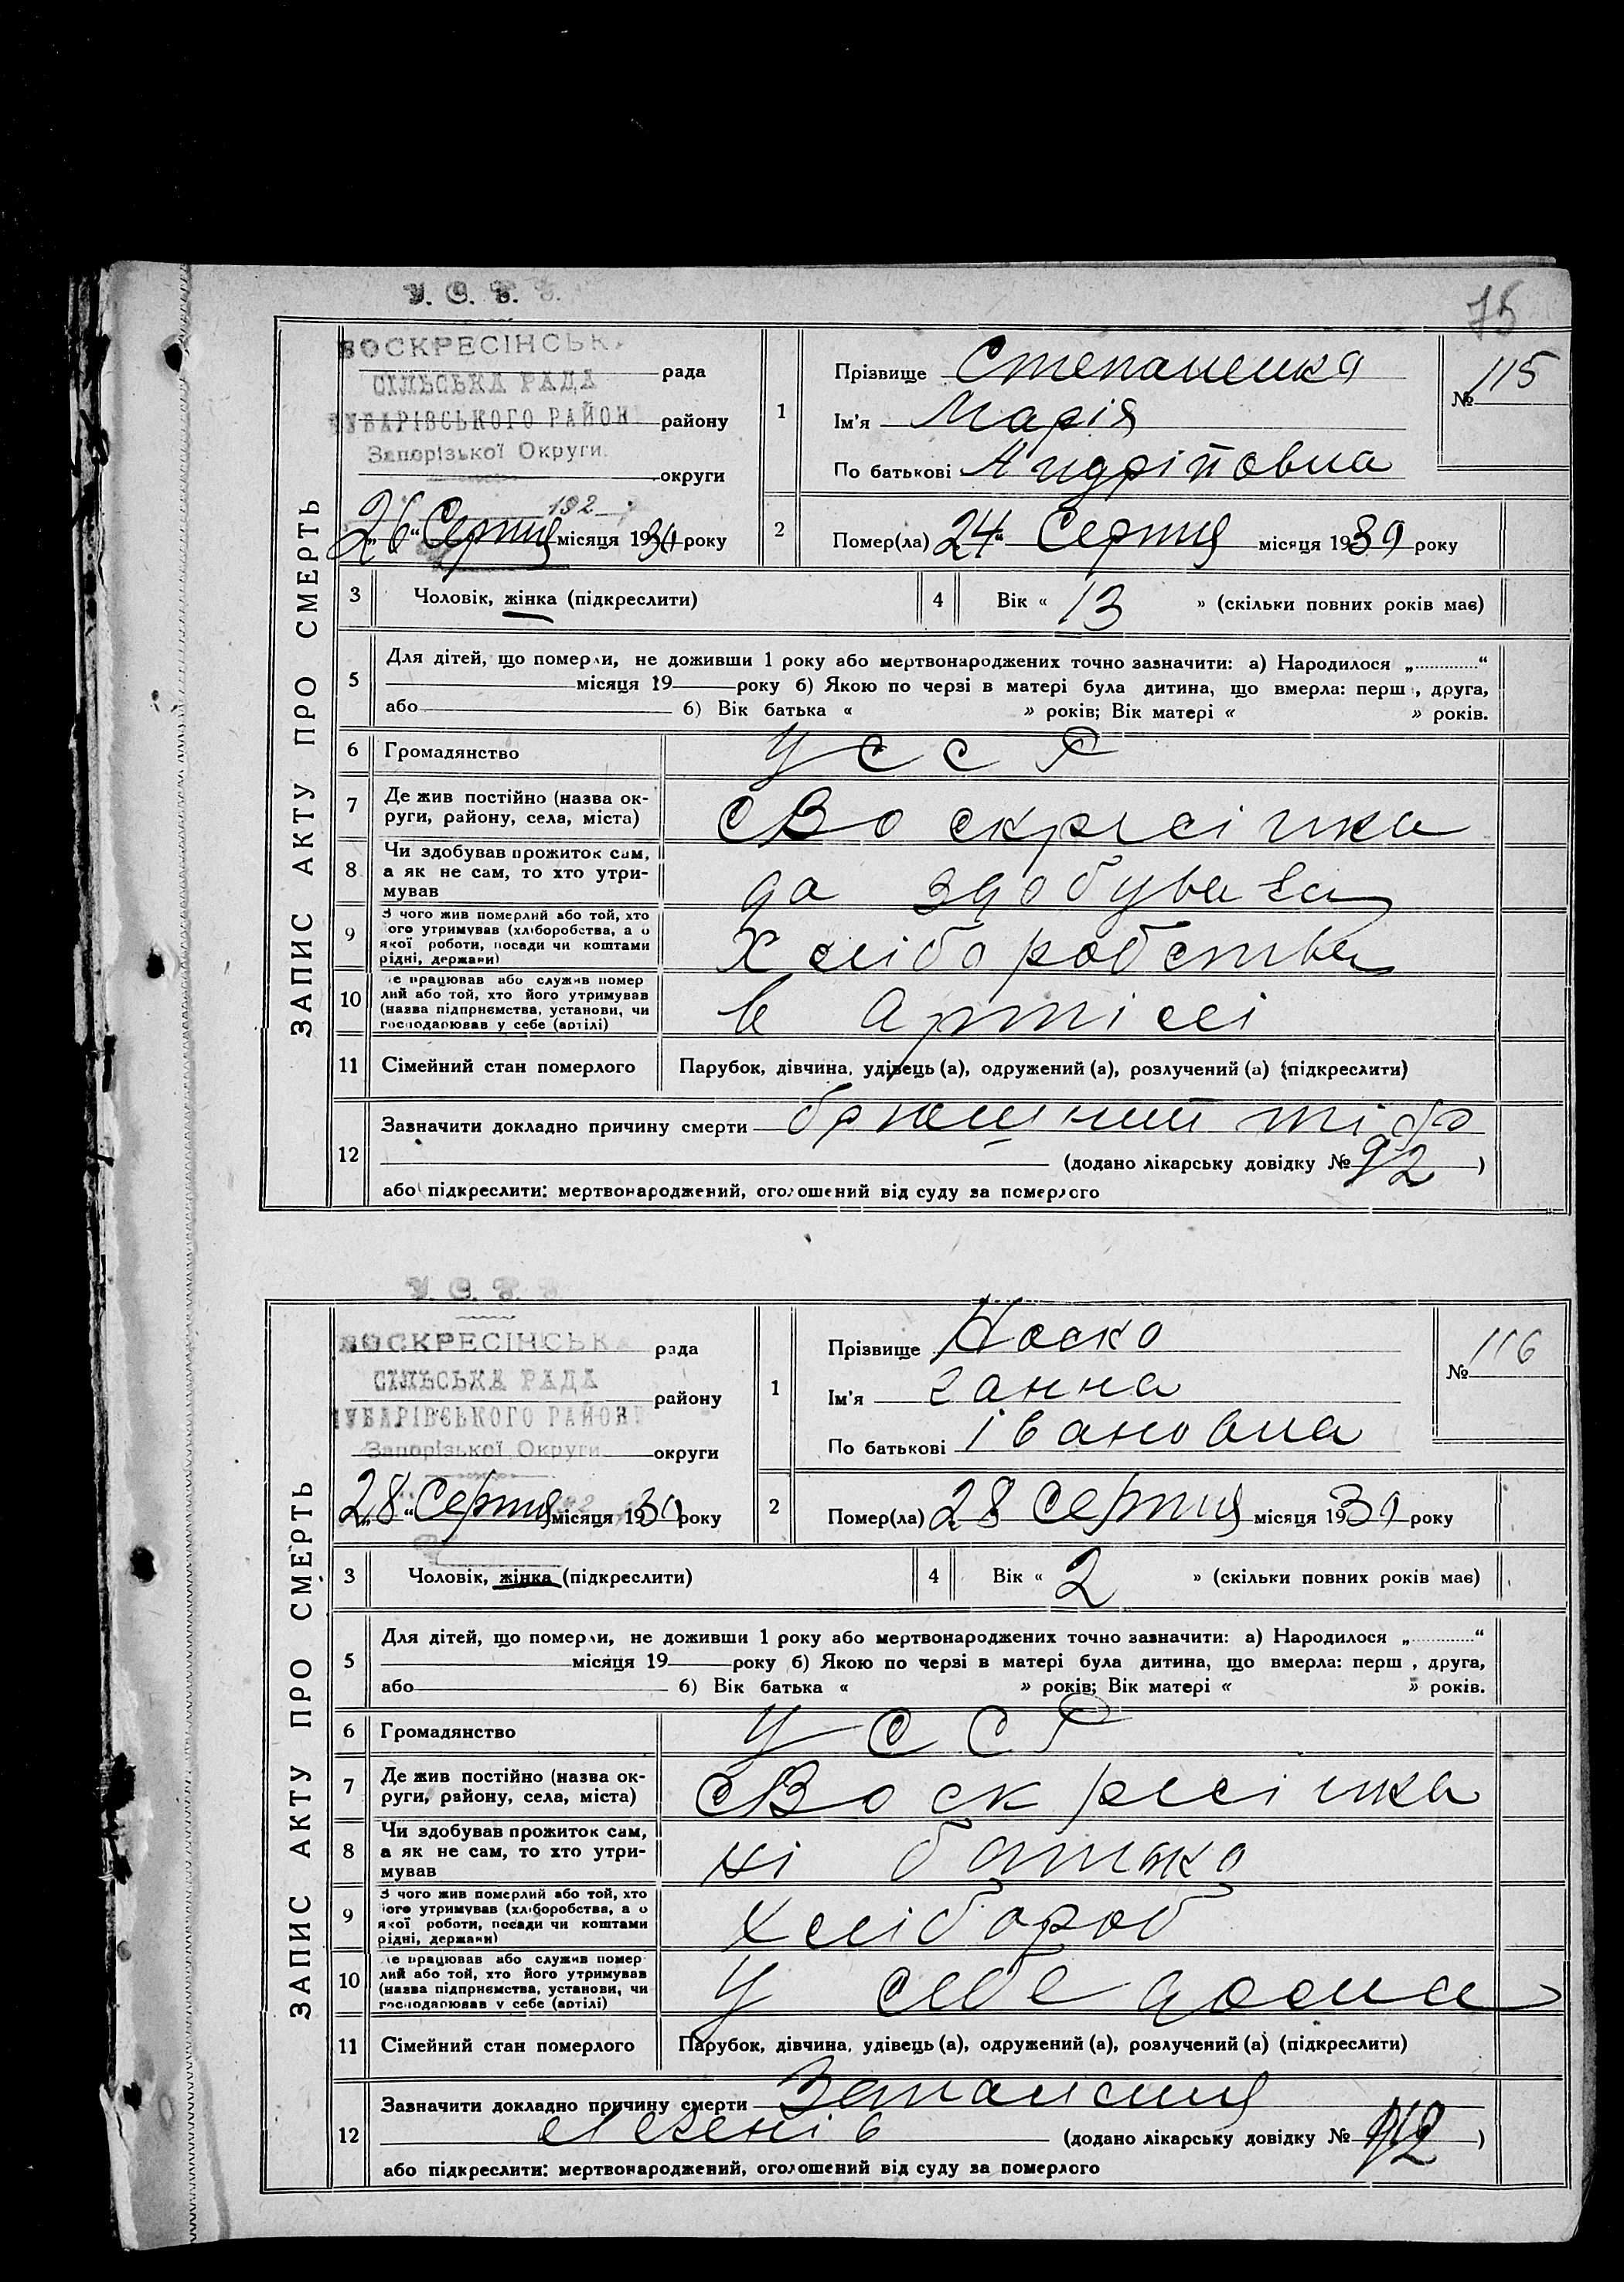 У. С.
75
ЗАПИС АКТУ ПРО СМЕРТЬ
ВОСКРЕСІНСЬКА
рада
СІЛЬСЬКА РАДА
ЧУБАРІВСЬКОГО РАЙОН
району
Запорізької Округи
округи
192
„26“ Серпня місяця 1930 року
1
Прізвище Степаненко
Ім'я Марія
По батькові Андріповна
№ 115
2
Помер(ла) 24“ Серпня місяця 1930 року
3 Чоловік, жінка (підкреслити)
4 Вік « 13 » (скільки повних років має)
5
Для дітей, що померли, не доживши 1 року або мертвонароджених точно зазначити: а) Народилося „ “
місяця 19 року б) Якою по черзі в матері була дитина, що вмерла: перш , друга,
або б) Вік батька « » років; Вік матері « » років.
6 Громадянство УССР
7 Де жив постійно (назва ок-
руги, району, села, міста)
с Воскресінка
8 Чи здобував прожиток сам,
а як не сам, то хто утри-
мував
да здобувала
9 З чого жив померлий або той, хто
його утримував (хліборобства, а о
якої роботи, посади чи коштами
рідні, держави)
Хліборобства
10 е працював або служив помер
лий або той, хто його утримував
(назва підприємства, установи, чи
господарював у себе (артілі)
в артілі
11 Сімейний стан померлого Парубок, дівчина, удівець (а), одружений (а), розлучений (а) (підкреслити)
12 Зазначити докладно причину смерти брюшний тіф
(додано лікарську довідку № 92 )
або підкреслити: мертвонароджений, оголошений від суду за померлого
У. С.
ЗАПИС АКТУ ПРО СМЕРТЬ
ВОСКРЕСІНСЬКА
рада
СІЛЬСЬКА РАДА
району
ЧУБАРІВСЬКОГО РАЙОНУ
Запорізької Округи
округи
„28“ Серпня місяця 1930 року
1
Прізвище Носко
Ім'я Ганна
По батькові Івановна
№ 116
2
Помер(ла) 28 Серпня місяця 1930 року
3 Чоловік, жінка (підкреслити)
4 Вік « 2 » (скільки повних років має)
5
Для дітей, що померли, не доживши 1 року або мертвонароджених точно зазначити: а) Народилося „ “
місяця 19 року б) Якою по черзі в матері була дитина, що вмерла: перш , друга,
або б) Вік батька « » років; Вік матері « » років.
6 Громадянство УССР
7 Де жив постійно (назва ок-
руги, району, села, міста)
с Воскресінка
8 Чи здобував прожиток сам,
а як не сам, то хто утри-
мував
ні батько
9 З чого жив померлий або той, хто
його утримував (хліборобства, а о
якої роботи, посади чи коштами
рідні, держави)
Хлібороб
10 е працював або служив помер
лий або той, хто його утримував
(назва підприємства, установи, чи
господарював у себе (артілі)
У себе дома
11 Сімейний стан померлого Парубок, дівчина, удівець (а), одружений (а), розлучений (а) (підкреслити)
12 Зазначити докладно причину смерти Запалення
легенів (додано лікарську довідку № )
або підкреслити: мертвонароджений, оголошений від суду за померлого